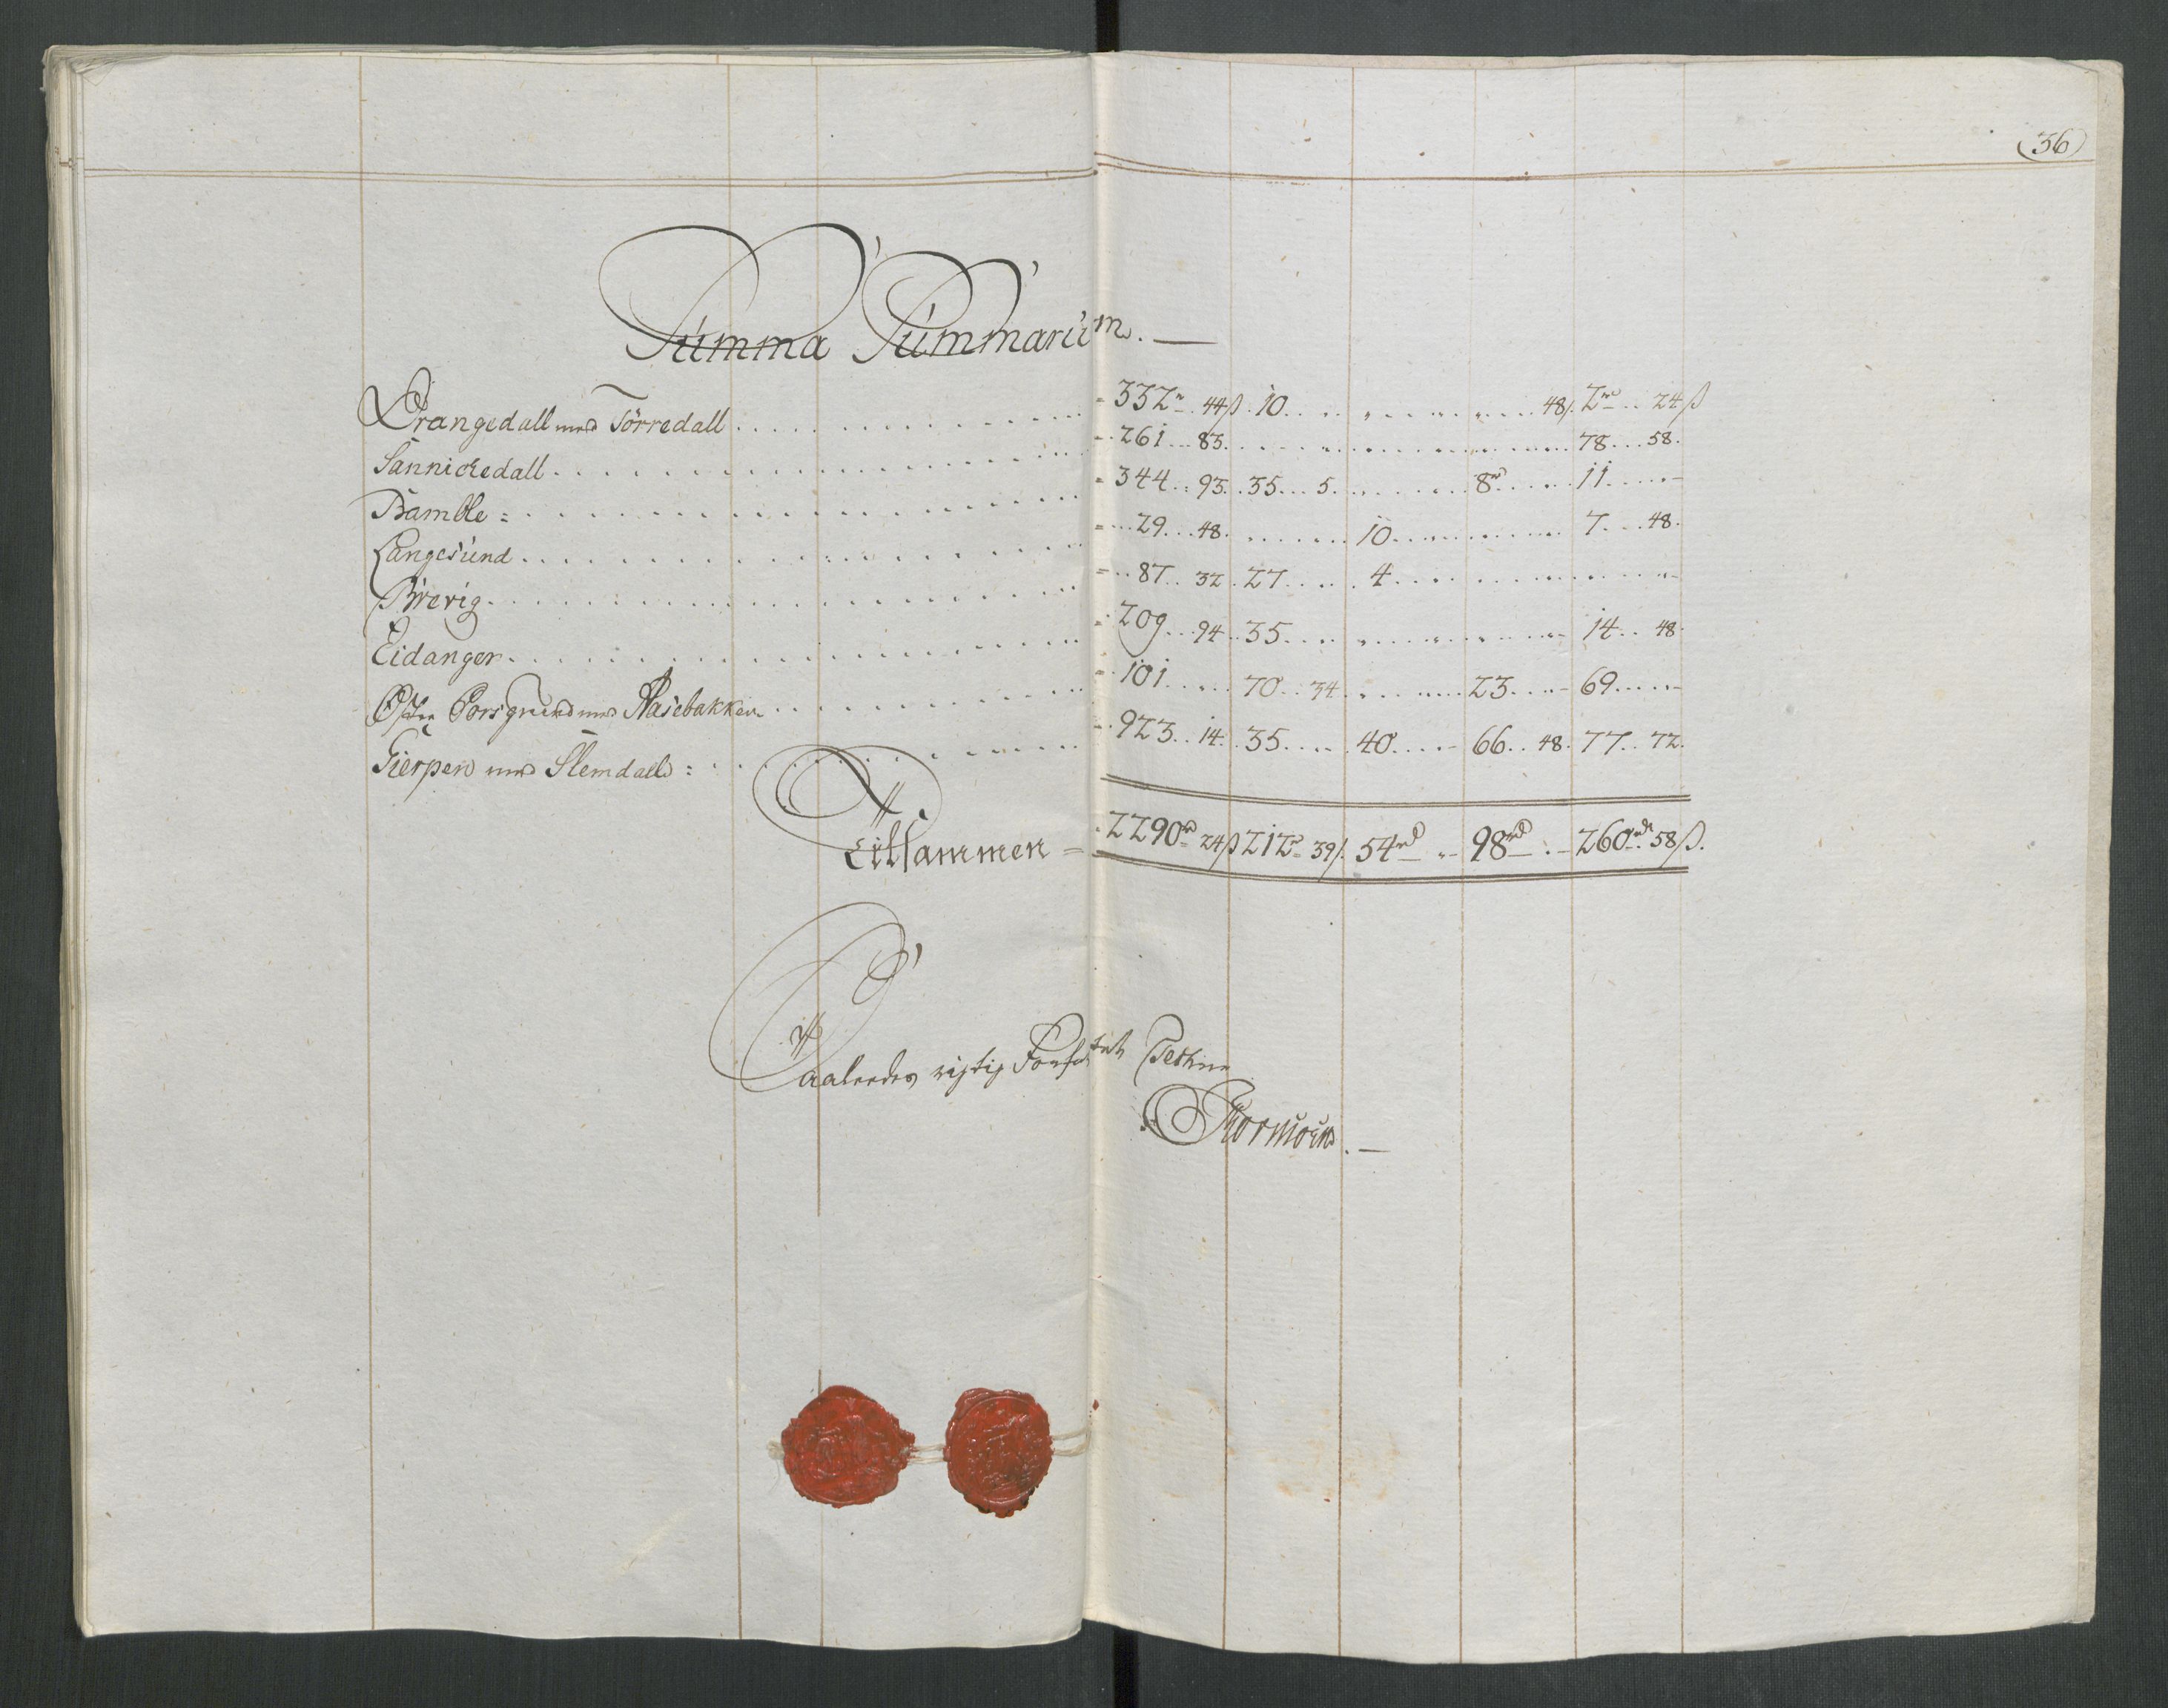 36
Summa Summarium.
Drangedall med Törredall . . . 332rd 44ß 10 . . . 48ß 2rd 24ß
Sannickedall . . . 261 83 . . . 78 58
Bamble . . . 344 93 35 5 . . . 8rd . . . 11
Langesund . . . 29 48 . . . 10 . . . 7 48
Brevig . . . 87 32 27 . . . 4 . . .
Eidanger . . . 209 94 35 . . . 14 48
Østre Porsgrund med Aasebakken . . . 101 . . . 70 34 . . . 23 . . . 69
Gierpen med Slemdall . . . 923 14 35 . . . 40 . . . 66 48 77 72
Tilsammen = 2290rd 24ß 212rd 39ß 54rd - 98rd - 260rd 58ß.
Saaledes rigtig Forfattet